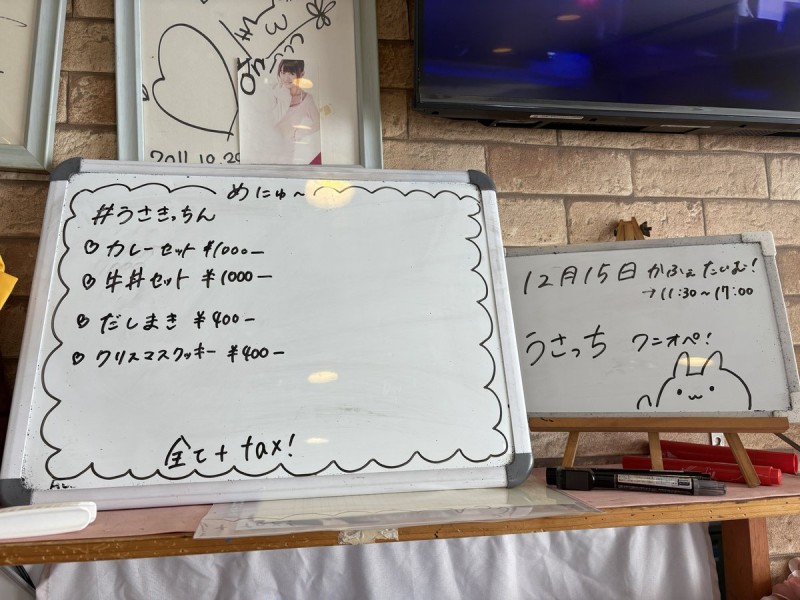 2011.10.29
めにゅ〜
#うさきっちん
♡ カレーセット ¥1000−
♡ 牛丼セット ¥1000−
♡ だしまき ¥400−
♡ クリスマスクッキー ¥400−
全て+tax!
12月15日 かふぇたいむ!
→11:30~17:00
うさっち ワニオペ!